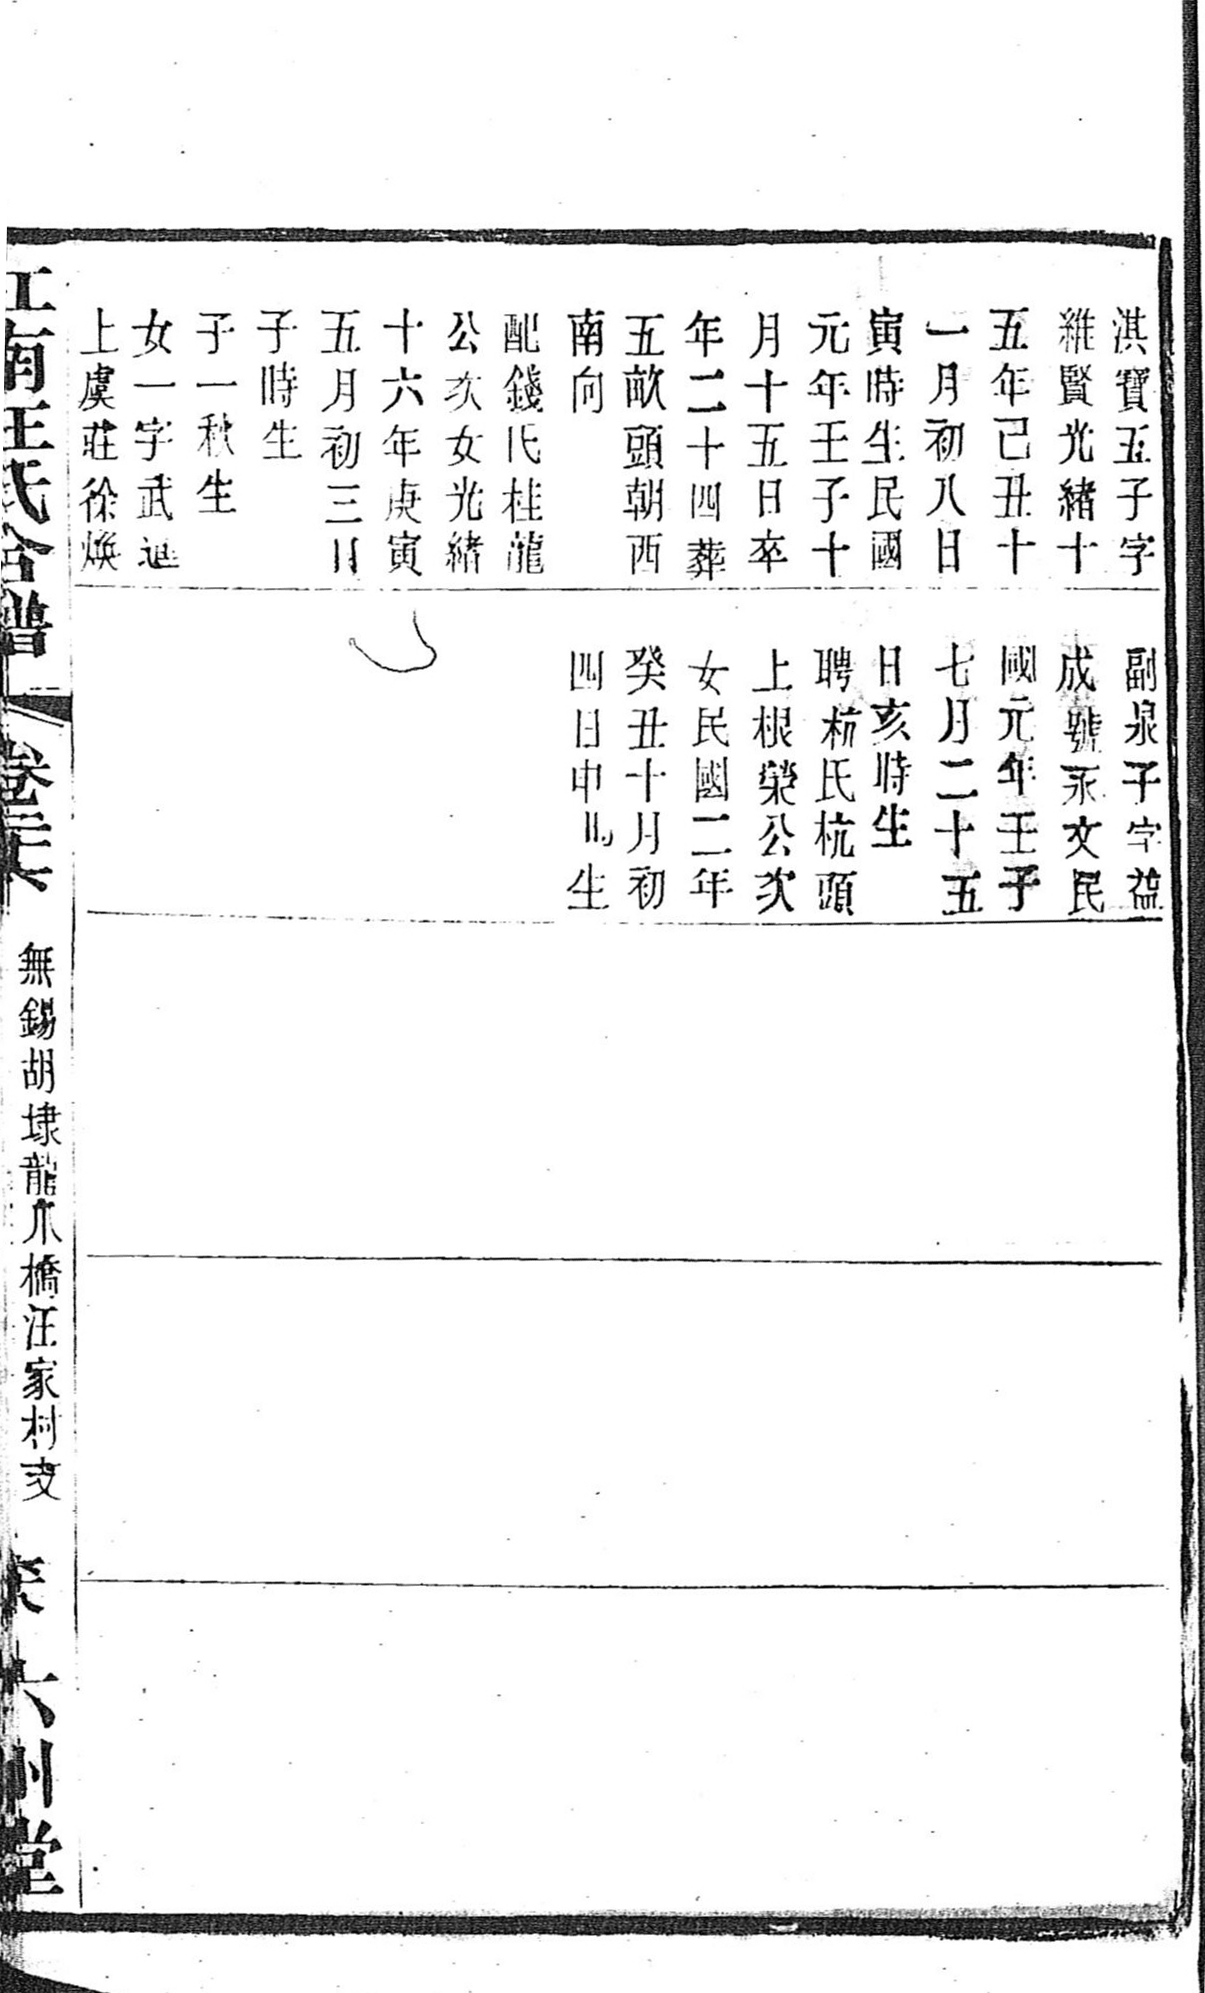 淇寶五子字
維賢光緒十
五年己丑十
一月初八日
寅時生民國
元年壬子十
月十五日卒
年二十四葬
五畝頭朝西
南向
配錢氏桂龍
公次女光緒
十六年庚寅
五月初三日
子時生
子一秋生
女一字武進
上虞莊徐煥
副泉子字益
成號永文民
國元年壬子
七月二十五
日亥時生
聘杭氏杭頭
上根榮公次
女民國二年
癸丑十月初
四日申時生
江南汪氏合譜
卷六
無錫胡埭龍爪橋汪家村支
六州堂